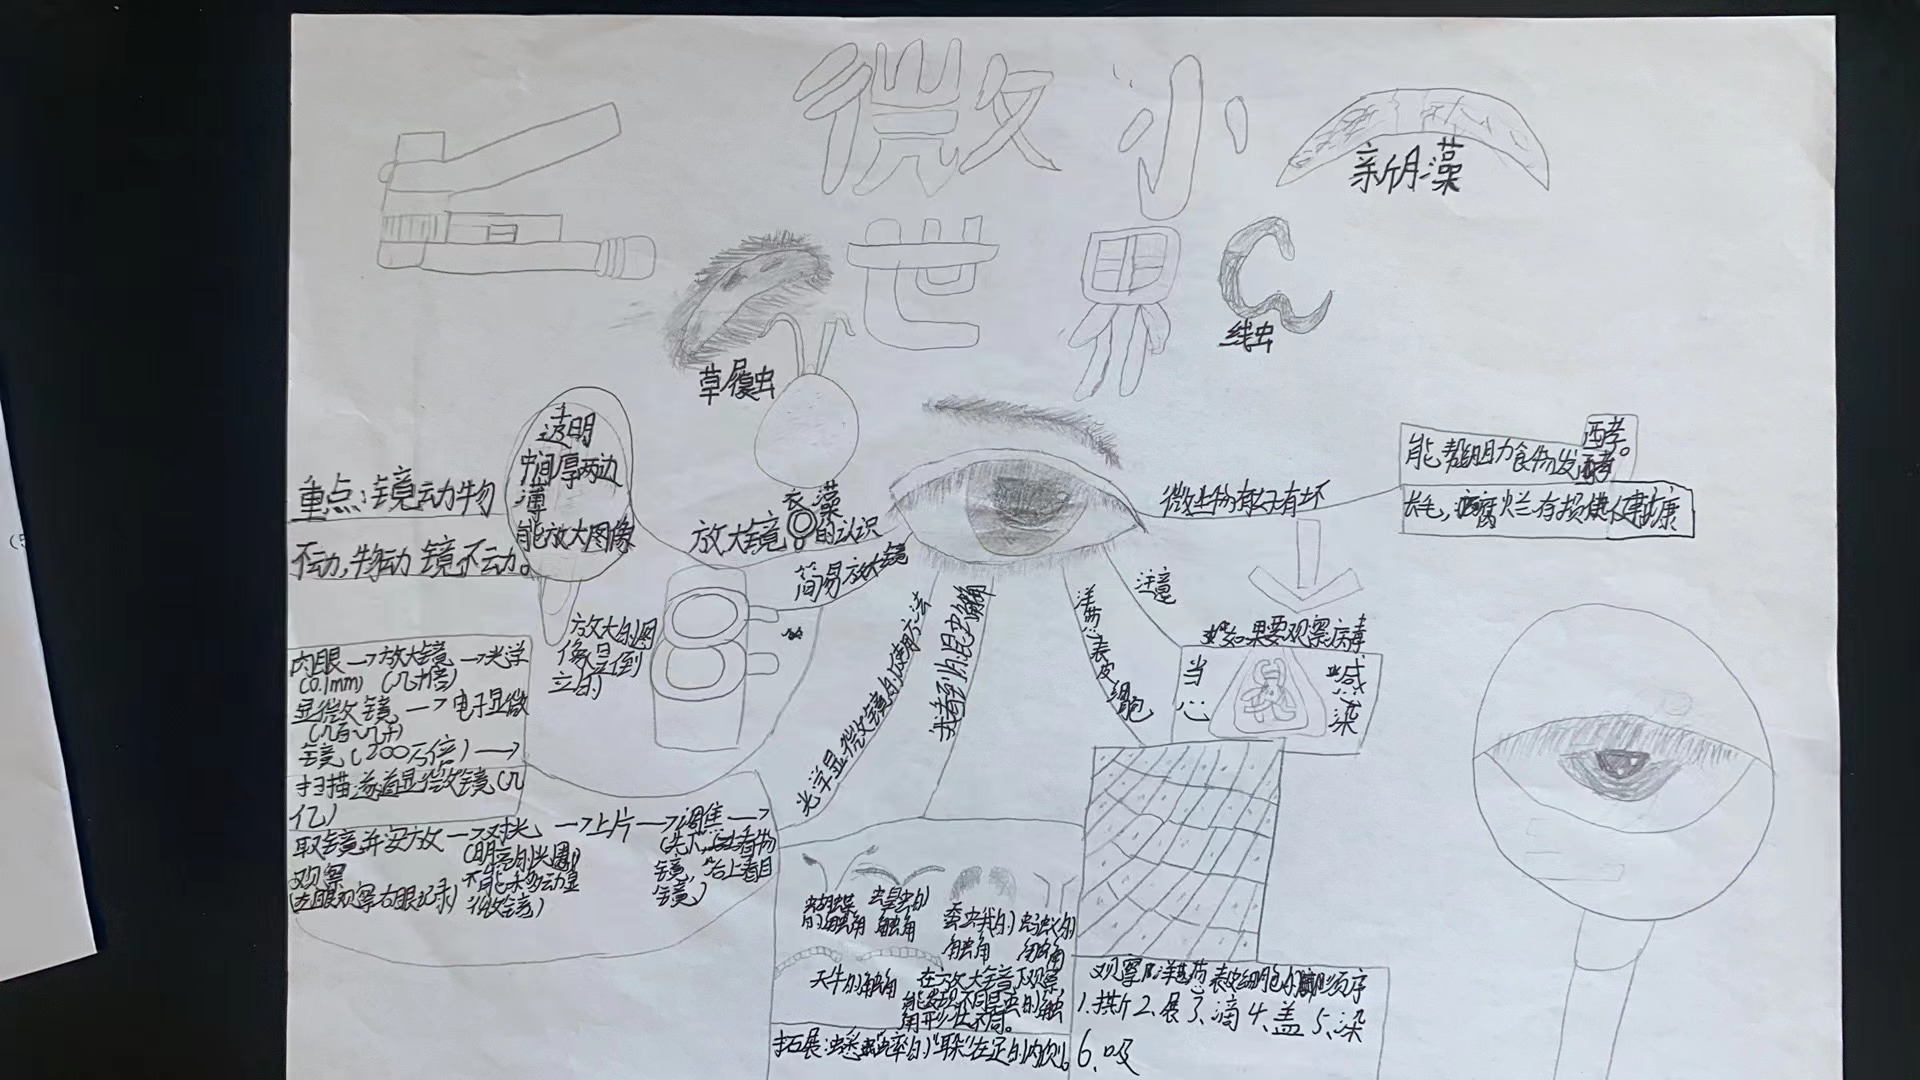 微小
世界
新月藻
线虫
草履虫
衣藻
透明
中间厚两边
薄
能放大图像
重点:镜动物
不动,物动镜不动。
放大镜的认识
简易放大镜
放大的图
像呈倒
立的
肉眼→放大镜→光学
(0.1mm) (几十倍)
显微镜→电子显微
(几百~几千)
镜(200万倍)→
扫描遂道显微镜(几
亿)
取镜并安放→对光→上片→调焦→
(明亮的光圈)
不能移动显
微镜)
镜,后上看目
镜)
观察
(左眼观察右眼记录)
光学显微镜的使用方法
我看到的昆虫
洋葱表皮
细胞
注意
微生物有好有坏
能帮助食物发酵。
如果要观察病毒
当心
感染
蝴蝶
的触角
蝗虫的
触角
蚕蛾的
触角
蚂蚁的
触角
天牛的触角
在放大镜下观察,
能发现不同昆虫的触
角形状不同。
拓展:蟋蟀的“耳朵”在足的内侧。
观察洋葱表皮细胞的顺序
1.撕 2、展 3、滴 4、盖 5、染
6、吸